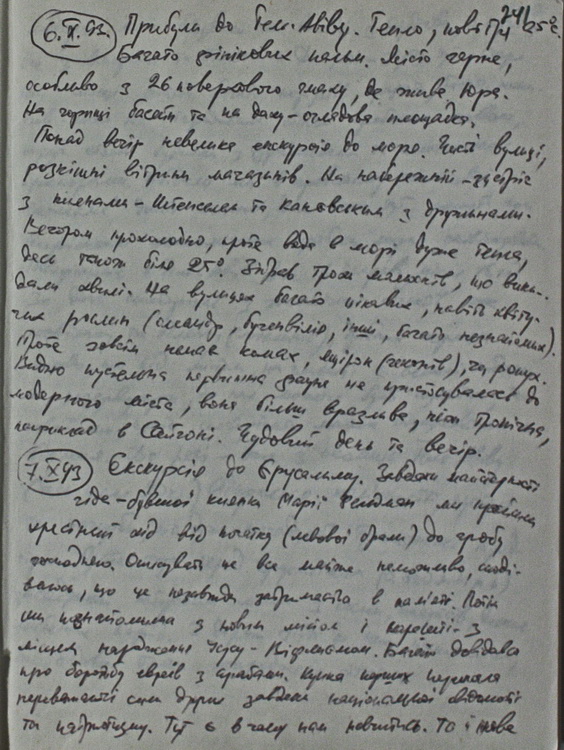 6.XI.93 Прибули до Тель-Авіву. Тепло, 24/25°с.
Багато фінікових пальм. Місто гарне,
особливо з 26 поверхового, де живе Юра.
На горищі басейн та на даху-оглядова площадка.
Понад вечір невелика екскурсія до моря. Чисті вулиці,
розкішні вітрини магазинів. На набережній - зустріч
з киянами - та Кановським з дружинами.
Вечором прохолодно, проте вода в морі дуже тепла,
десь також біля 25°. Зібрав трохи, що вики-
дали хвилі. На вулицях багато цікавих, навіть квіту-
чих рослин (олеандр, бугенвілія, інші, багато незнайомих).
Проте зовсім немає комах, ящірок (геконів), та.
Видно пустельна первинна фауна не пристосувалась до
модерного міста, вона більш вразлива, ніж тропічна,
наприклад в Сайгоні. Чудовий день та вечір.
7.XI.93 Екскурсія до Єрусалиму. Завдяки майстерності
гіда - бувшої киянки Марії Фельдман ми пройшли
хресний хід від початку (левової брами) до гробу
господнього. Описувать це все майже неможливо, споді-
ваюсь, що це назавжди запам в пам'яті. Потім
ми познайомились з новим містом і нарешті - з
місцем народження Ісусу - Віфлиємом. Багато довідався
про боротьбу євреїв з арабами. Купка перших
сили завдяки національної свідомості
та патріотизму. Тут є в чому нам повчитись. То і мова